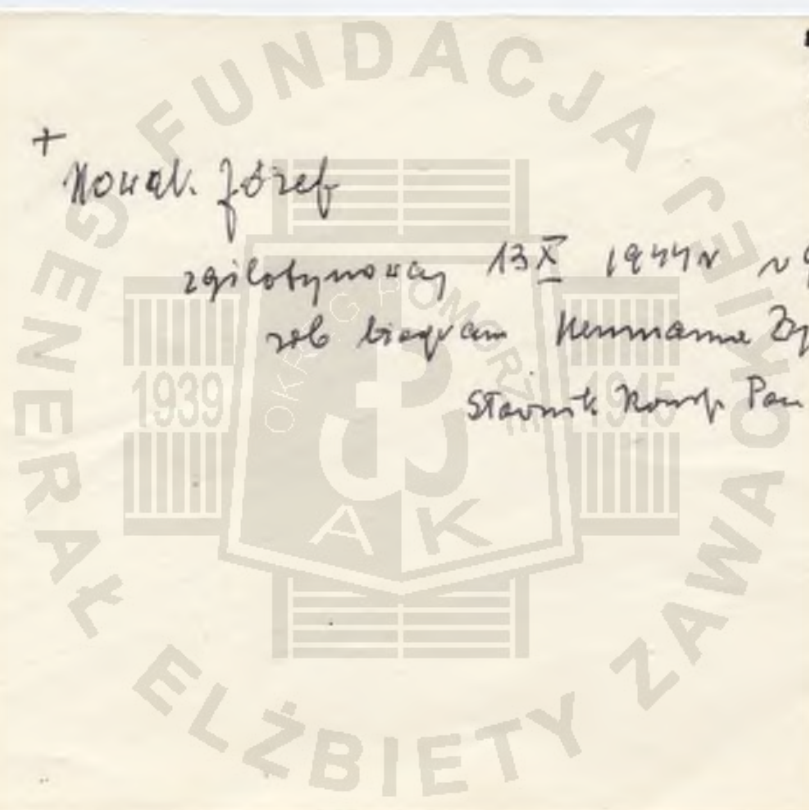 +
Nowak Józef
zgilotynowany 13 X 1944 r w
zob biogram Hermanna
Słownik Konsp. Pom
FUNDACJA GENERAŁ ELŻBIETY ZAWACKIEJ
OKRĘG POMORZE
1939 1945
AK